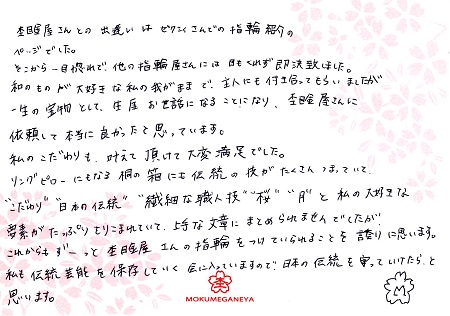 杢目屋さんとの出逢いはゼクシィさんでの指輪紹介の
ページでした。
そこから一目惚れで、他の指輪屋さんには目もくれず即決致しました。
和のものが大好きな私の我がままで、主人にも付き合ってもらいましたが
一生の宝物として、生涯お世話になることになり、杢目屋さんに
依頼して本当に良かったと思っています。
私のこだわりも、叶えて頂けて大変満足でした。
リングピローにもなる桐の箱にも伝統の技がたくさんつまっていて、
"こだわり" "日本の伝統" "繊細な職人技" "桜" "月" と 私の大好きな
要素がたっぷりとりこまれていて、上手な文章にまとめられませんでしたが
これからもずーっと杢目屋さんの指輪をつけていられることを誇りに思います。
私も伝統芸能を保存していく会に入っていますので、日本の伝統を守っていけたら、と
思います。
MOKUMEGANEYA